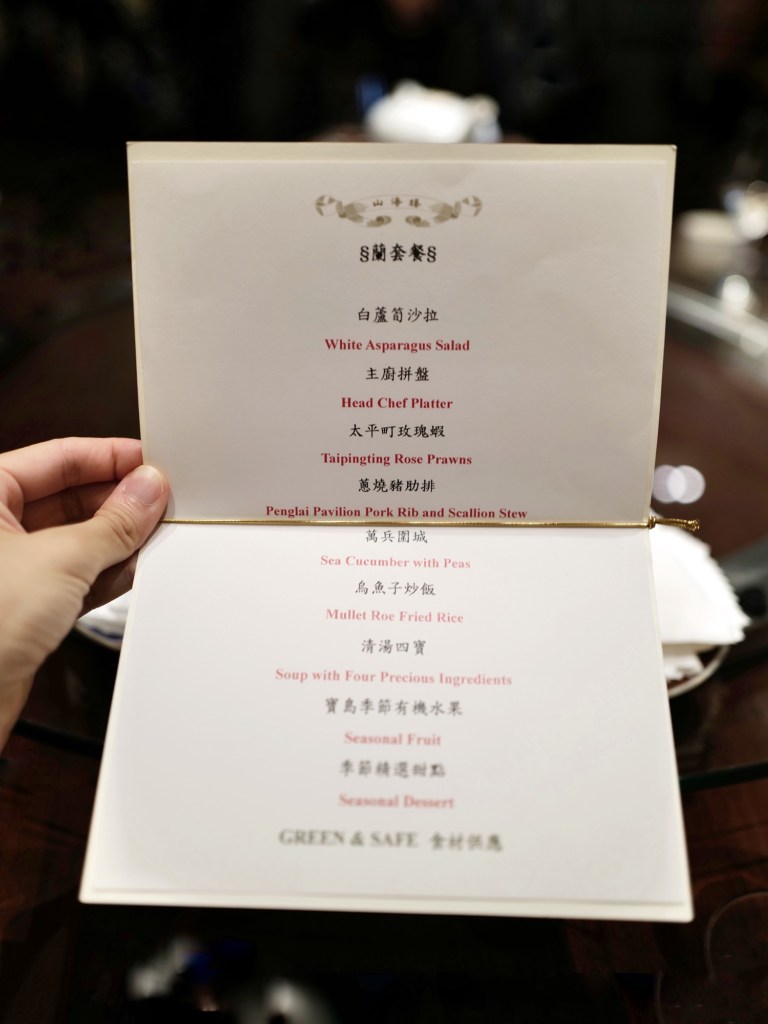 山海樓
§蘭套餐§
白蘆筍沙拉
White Asparagus Salad
主廚拼盤
Head Chef Platter
太平町玫瑰蝦
Taipingting Rose Prawns
蔥燒豬肋排
Penglai Pavilion Pork Rib and Scallion Stew
萬兵圍城
Sea Cucumber with Peas
烏魚子炒飯
Mullet Roe Fried Rice
清湯四寶
Soup with Four Precious Ingredients
寶島季節有機水果
Seasonal Fruit
季節精選甜點
Seasonal Dessert
GREEN & SAFE 食材供應